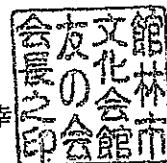 館林市
文化会館
友の会
会長之印